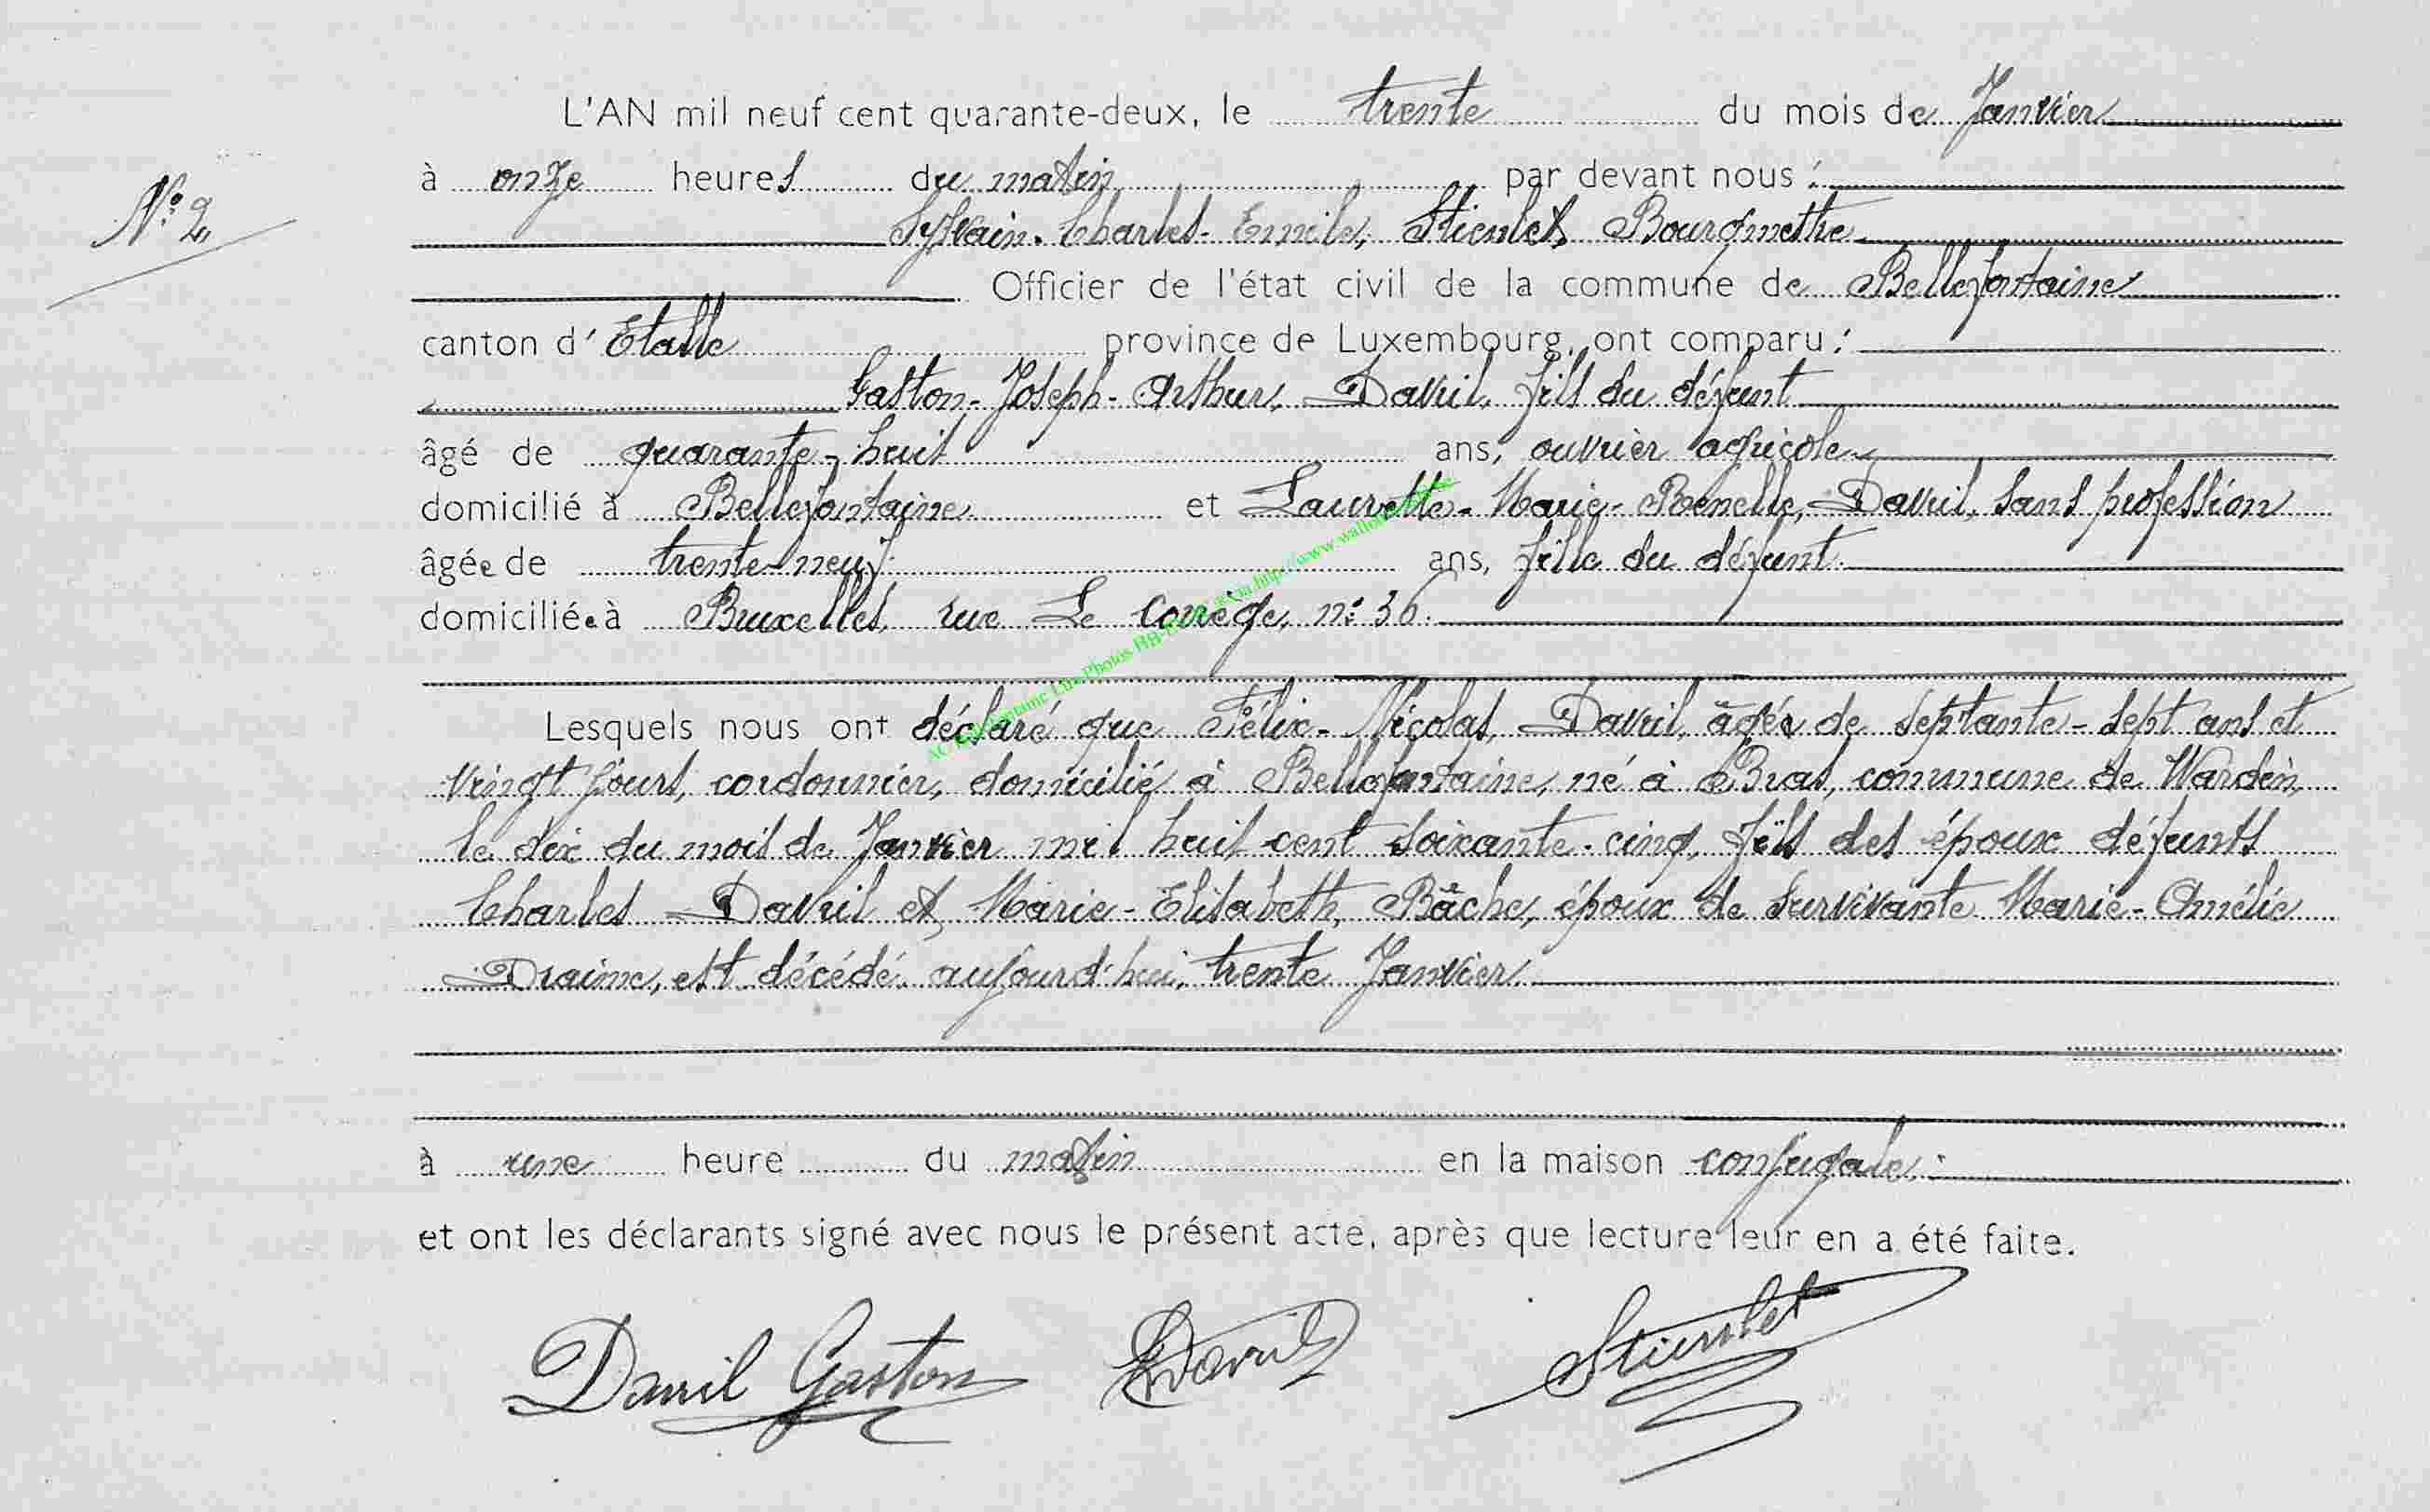 L'AN mil neuf cent quarante-deux, le trente du mois de Janvier
à onze heures du matin par devant nous :
N° 2
Sylvain-Charles-Emile, Stienlet, Bourgmestre
Officier de l'état civil de la commune de Bellefontaine
canton d'Etalle province de Luxembourg, ont comparu :
Gaston-Joseph-Arthur, Davril, fils du défunt
âgé de quarante-huit ans, ouvrier agricole
domicilié à Bellefontaine et Laurette-Marie-Benelle, Davril, sans profession
âgée de trente-neuf ans, fille du défunt.
domiciliée à Bruxelles, rue Le Corrège, n° 36.
Lesquels nous ont déclaré que Félix-Nicolas, Davril, âgé de septante-sept ans et
vingt jours, cordonnier, domicilié à Bellefontaine, né à Bras, commune de Wardin,
le dix du mois de Janvier mil huit cent soixante-cinq, fils des époux défunts
Charles Davril et Marie-Elisabeth, Bâche, époux de survivante Marie-Amélie
Draime, est décédé aujourd'hui, trente Janvier,
à une heure du matin en la maison conjugale;
et ont les déclarants signé avec nous le présent acte, après que lecture leur en a été faite.
Davril Gaston Davril Stienlet